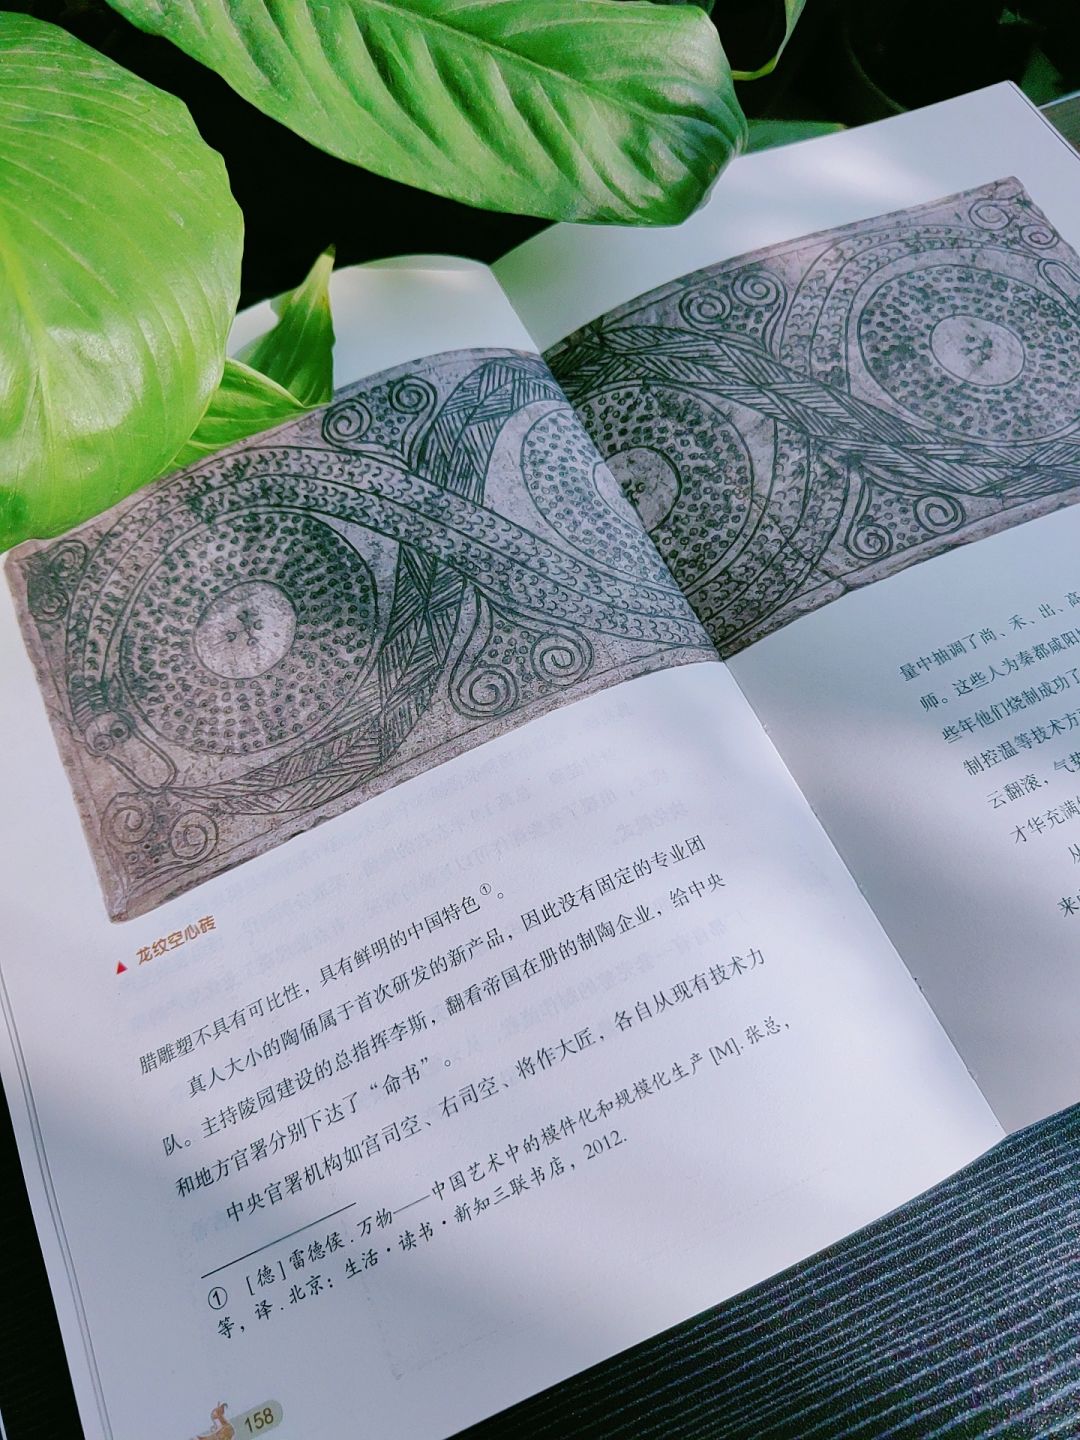 龙纹空心砖
腊雕塑不具有可比性，具有鲜明的中国特色①。
真人大小的陶俑属于首次研发的新产品，因此没有固定的专业团
队。主持陵园建设的总指挥李斯，翻看帝国在册的制陶企业，给中央
和地方官署分别下达了“命书”。
中央官署机构如宫司空、右司空、将作大匠，各自从现有技术力
① [德]雷德侯.万物——中国艺术中的模件化和规模化生产[M].张总，
等，译.北京：生活·读书·新知三联书店，2012.
158
量中抽调了尚、禾、出、高
师。这些人为秦都咸阳
些年他们烧制成功了
制控温等技术方
云翻滚，气势
才华充满
从
来